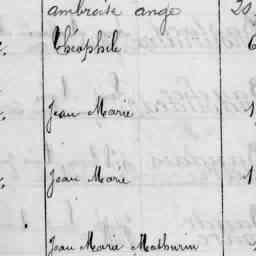 ambroise ange 20
Théophile 6
Jean Marie 1
Jean Marie 1
Jean Marie Mathurin